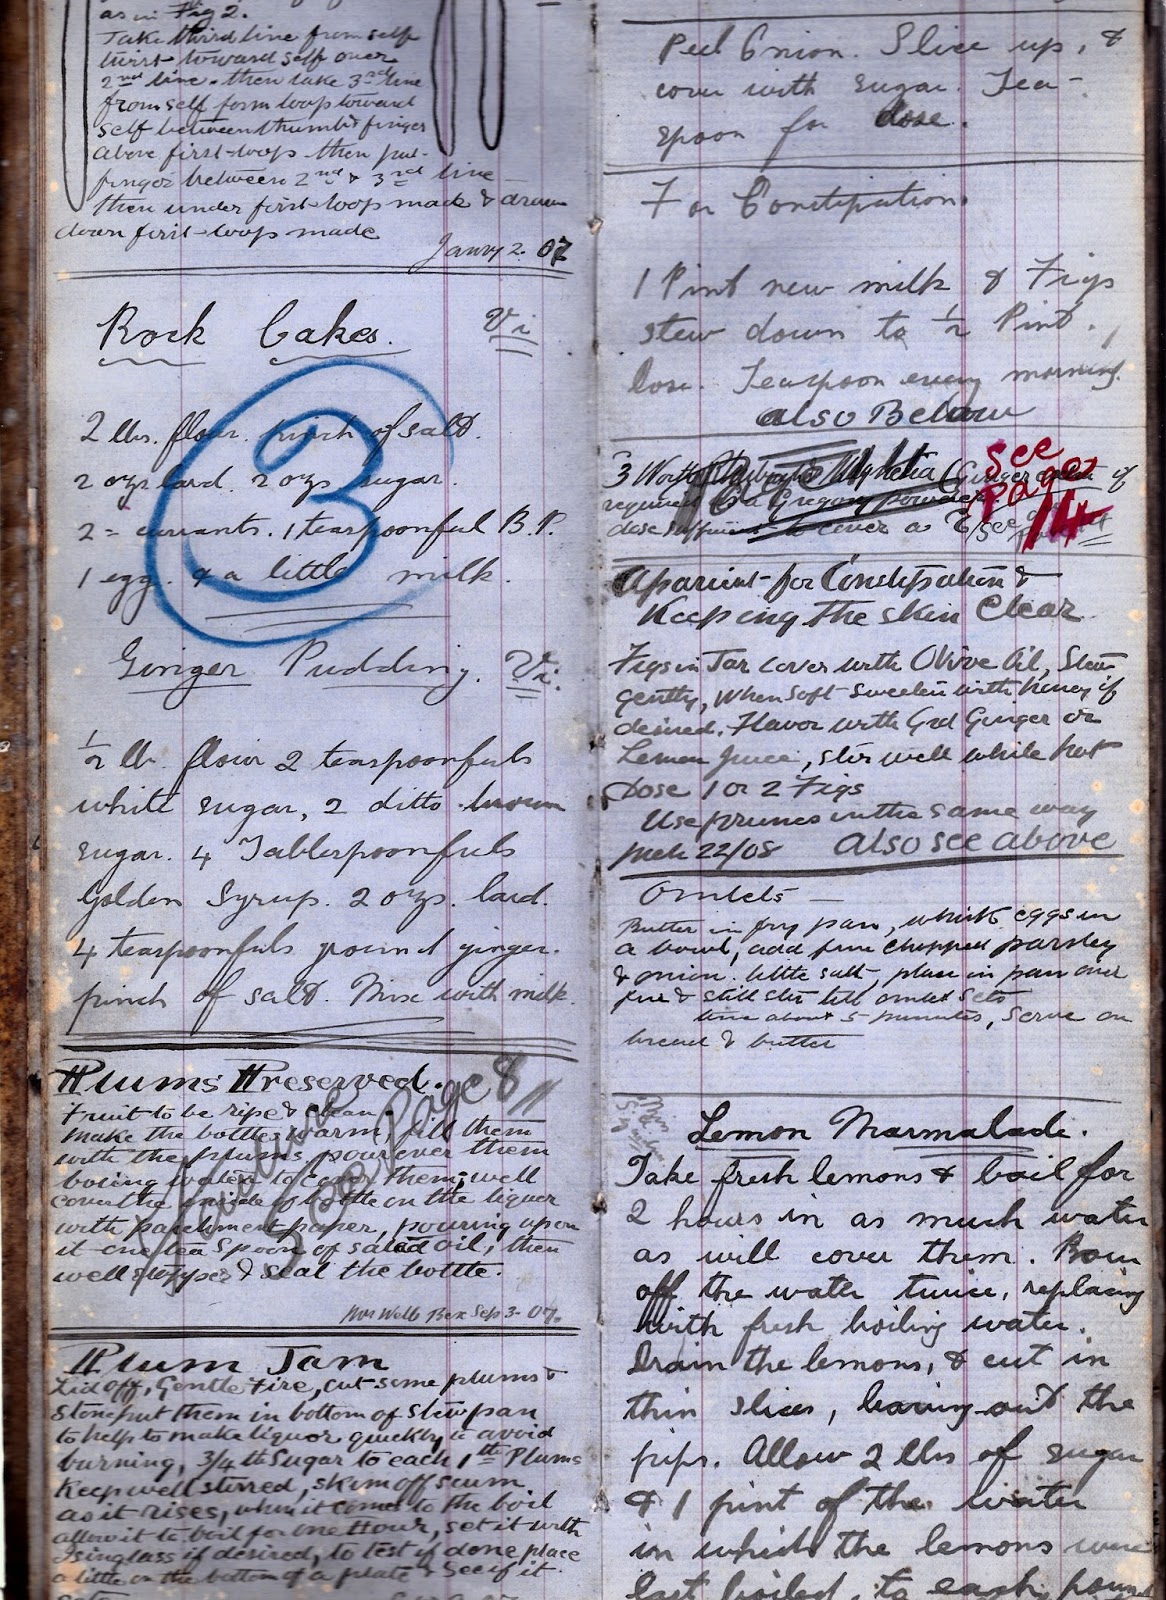 as in Fig 2.
Take third line from self
twist toward self over
2nd line. then take 3rd line
from self form loop toward
self between thumb & finger
above first loop then put
finger between 2nd & 3rd line
then under first loop made & draw
down first loop made
Janry 2. 07
Rock Cakes. Vi
2 lbs. flour. pinch of salt.
2 ozs lard. 2 ozs sugar.
2 = currants. 1 teaspoonful B.P.
1 egg. & a little milk.
3
Ginger Pudding. Vi.
1/2 lb. flour 2 teaspoonfuls
white sugar, 2 ditto brown
sugar. 4 Tablespoonfuls
Golden Syrup. 2 ozs. lard.
4 teaspoonfuls ground ginger.
pinch of salt. Mix with milk.
Plums Preserved.
See Page 8
Fruit to be ripe & clean.
Make the bottles warm, fill them
with the plums, pour over them
boiling water to cover them; well
cover the inside of bottle on the liquor
with parchment paper, pouring upon
it one tea spoon of salad oil, then
well stopper & seal the bottle.
Mrs Webb Bex Sep 3. 07.
Plum Jam
Lid off, Gentle Fire, cut some plums &
stone put them in bottom of stewpan
to help to make liquor quickly & avoid
burning, 3/4 lb Sugar to each 1 lb Plums
Keep well stirred, skim off scum
as it rises, when it comes to the boil
allow it to boil for one Hour, set it with
Isinglass if desired, to test if done place
a little on the bottom of a plate & see if it
sets
Peel Onion. Slice up, &
cover with sugar. Tea-
spoon for dose.
For Constipation.
1 Pint new milk & Figs
stew down to 1/2 Pint.
dose. Teaspoon every morning.
also Below
3 Worth Magnetia (Ginger if
required Gregory powder
dose sufficient to cover a
See
Page
14
Aparient for Constipation &
Keeping the skin Clear
Figs in Jar cover with Olive Oil, Stew
gently, when soft sweeten with honey if
desired. Flavor with Grd Ginger or
Lemon Juice, stir well while hot
Dose 1 or 2 Figs
Use prunes in the same way
Mch 22/08 also see above
Omlets —
Butter in fry pan, whisk eggs in
a bowl, add fine chopped parsley
& onion. little salt, place in pan over
fire & still stir till omlet sets
time about 5 minutes, serve on
bread & butter
Lemon Marmalade.
Take fresh lemons & boil for
2 hours in as much water
as will cover them. Pour
off the water twice, replacing
with fresh boiling water.
Drain the lemons, & cut in
thin slices, leaving out the
pips. Allow 2 lbs of sugar
& 1 pint of the water
in which the lemons were
last boiled, to each pound